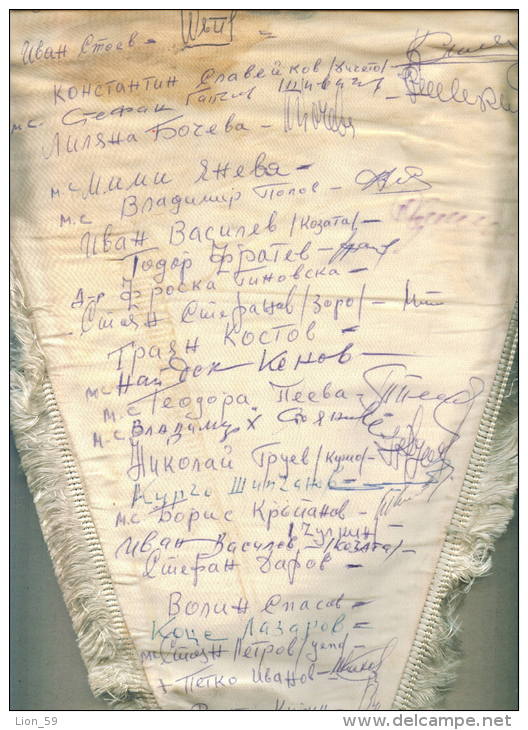 Иван Стоев -
Константин Славейков /Учето/ -
м.с. Стефан
Лиляна Бочева -
м.с. Мими Янева -
м.с Владимир Попов -
Иван Василев /Козата/ -
Тодор Фратев -
д-р Фроска Гиновска -
Стоян Стефанов /Зоро/ -
Траян Костов =
м.с Найден Кенов -
м.с. Теодора Пеева -
м.с Владимир Стоянов
Николай Груев /Кушо/ -
м.с. Борис Кръпанов -
Иван Василев /Козата/ -
Стефан Даров -
Волин Спасов =
Коце Лазаров =
м.с Стоян Петров
+ Петко Иванов -
Lion_59
www.delcampe.net